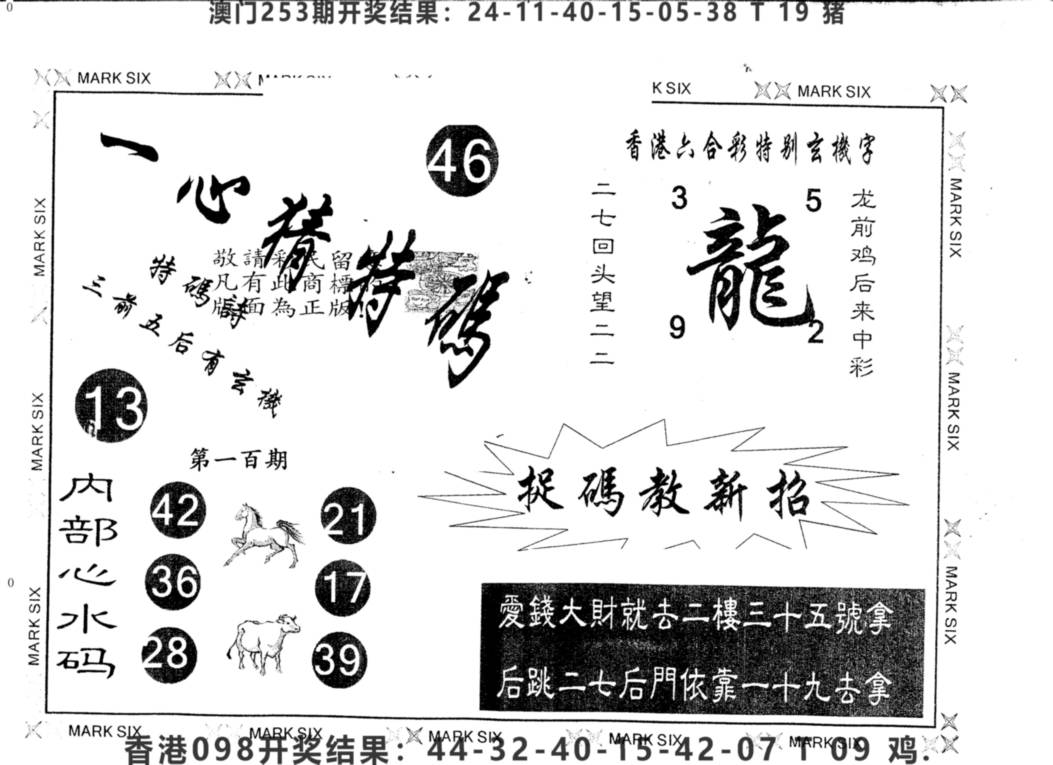 澳门253期开奖结果：24-11-40-15-05-38 T 19 猪
MARK SIX
K SIX
MARK SIX
一心猜特碼
46
敬請彩民留
凡有此商標的
版面為正版!
特碼詩
三前五后有玄機
13
第一百期
内部心水码
42
36
28
21
17
39
香港六合彩特别玄機字
二七回头望二二
3
5
龍
9
2
龙前鸡后来中彩
捉碼教新招
愛錢大財就去二樓三十五號拿
后跳二七后門依靠一十九去拿
MARK SIX
MARK SIX
MARK SIX
MARK SIX
MARK SIX
MARK SIX
MARK SIX
MARK SIX
MARK SIX
MARK SIX
MARK SIX
香港098开奖结果：44-32-40-15-42-07 T 09 鸡.